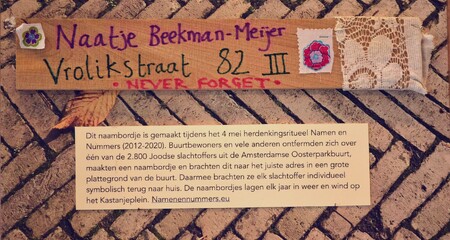 Naatje Beekman-Meijer
Vrolikstraat 82 III
• NEVER FORGET •
Dit naambordje is gemaakt tijdens het 4 mei herdenkingsritueel Namen en
Nummers (2012-2020). Buurtbewoners en vele anderen ontfermden zich over
één van de 2.800 Joodse slachtoffers uit de Amsterdamse Oosterparkbuurt,
maakten een naambordje en brachten dit naar het juiste adres in een grote
plattegrond van de buurt. Daarmee brachten ze elk slachtoffer individueel
symbolisch terug naar huis. De naambordjes lagen elk jaar in weer en wind op
het Kastanjeplein. Namenennummers.eu